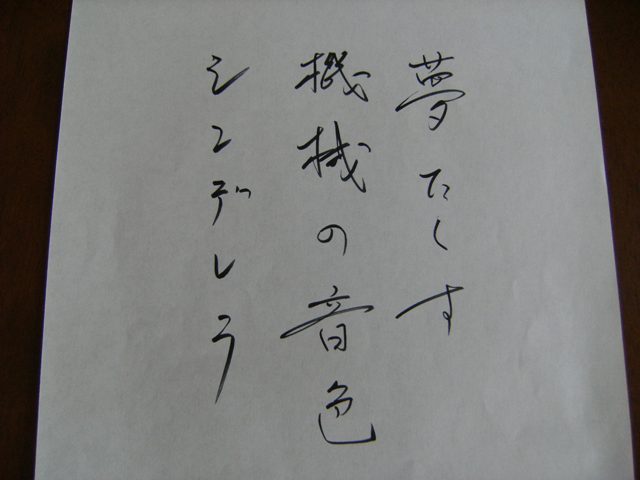 夢たくす
機械の音色
シンデレラ